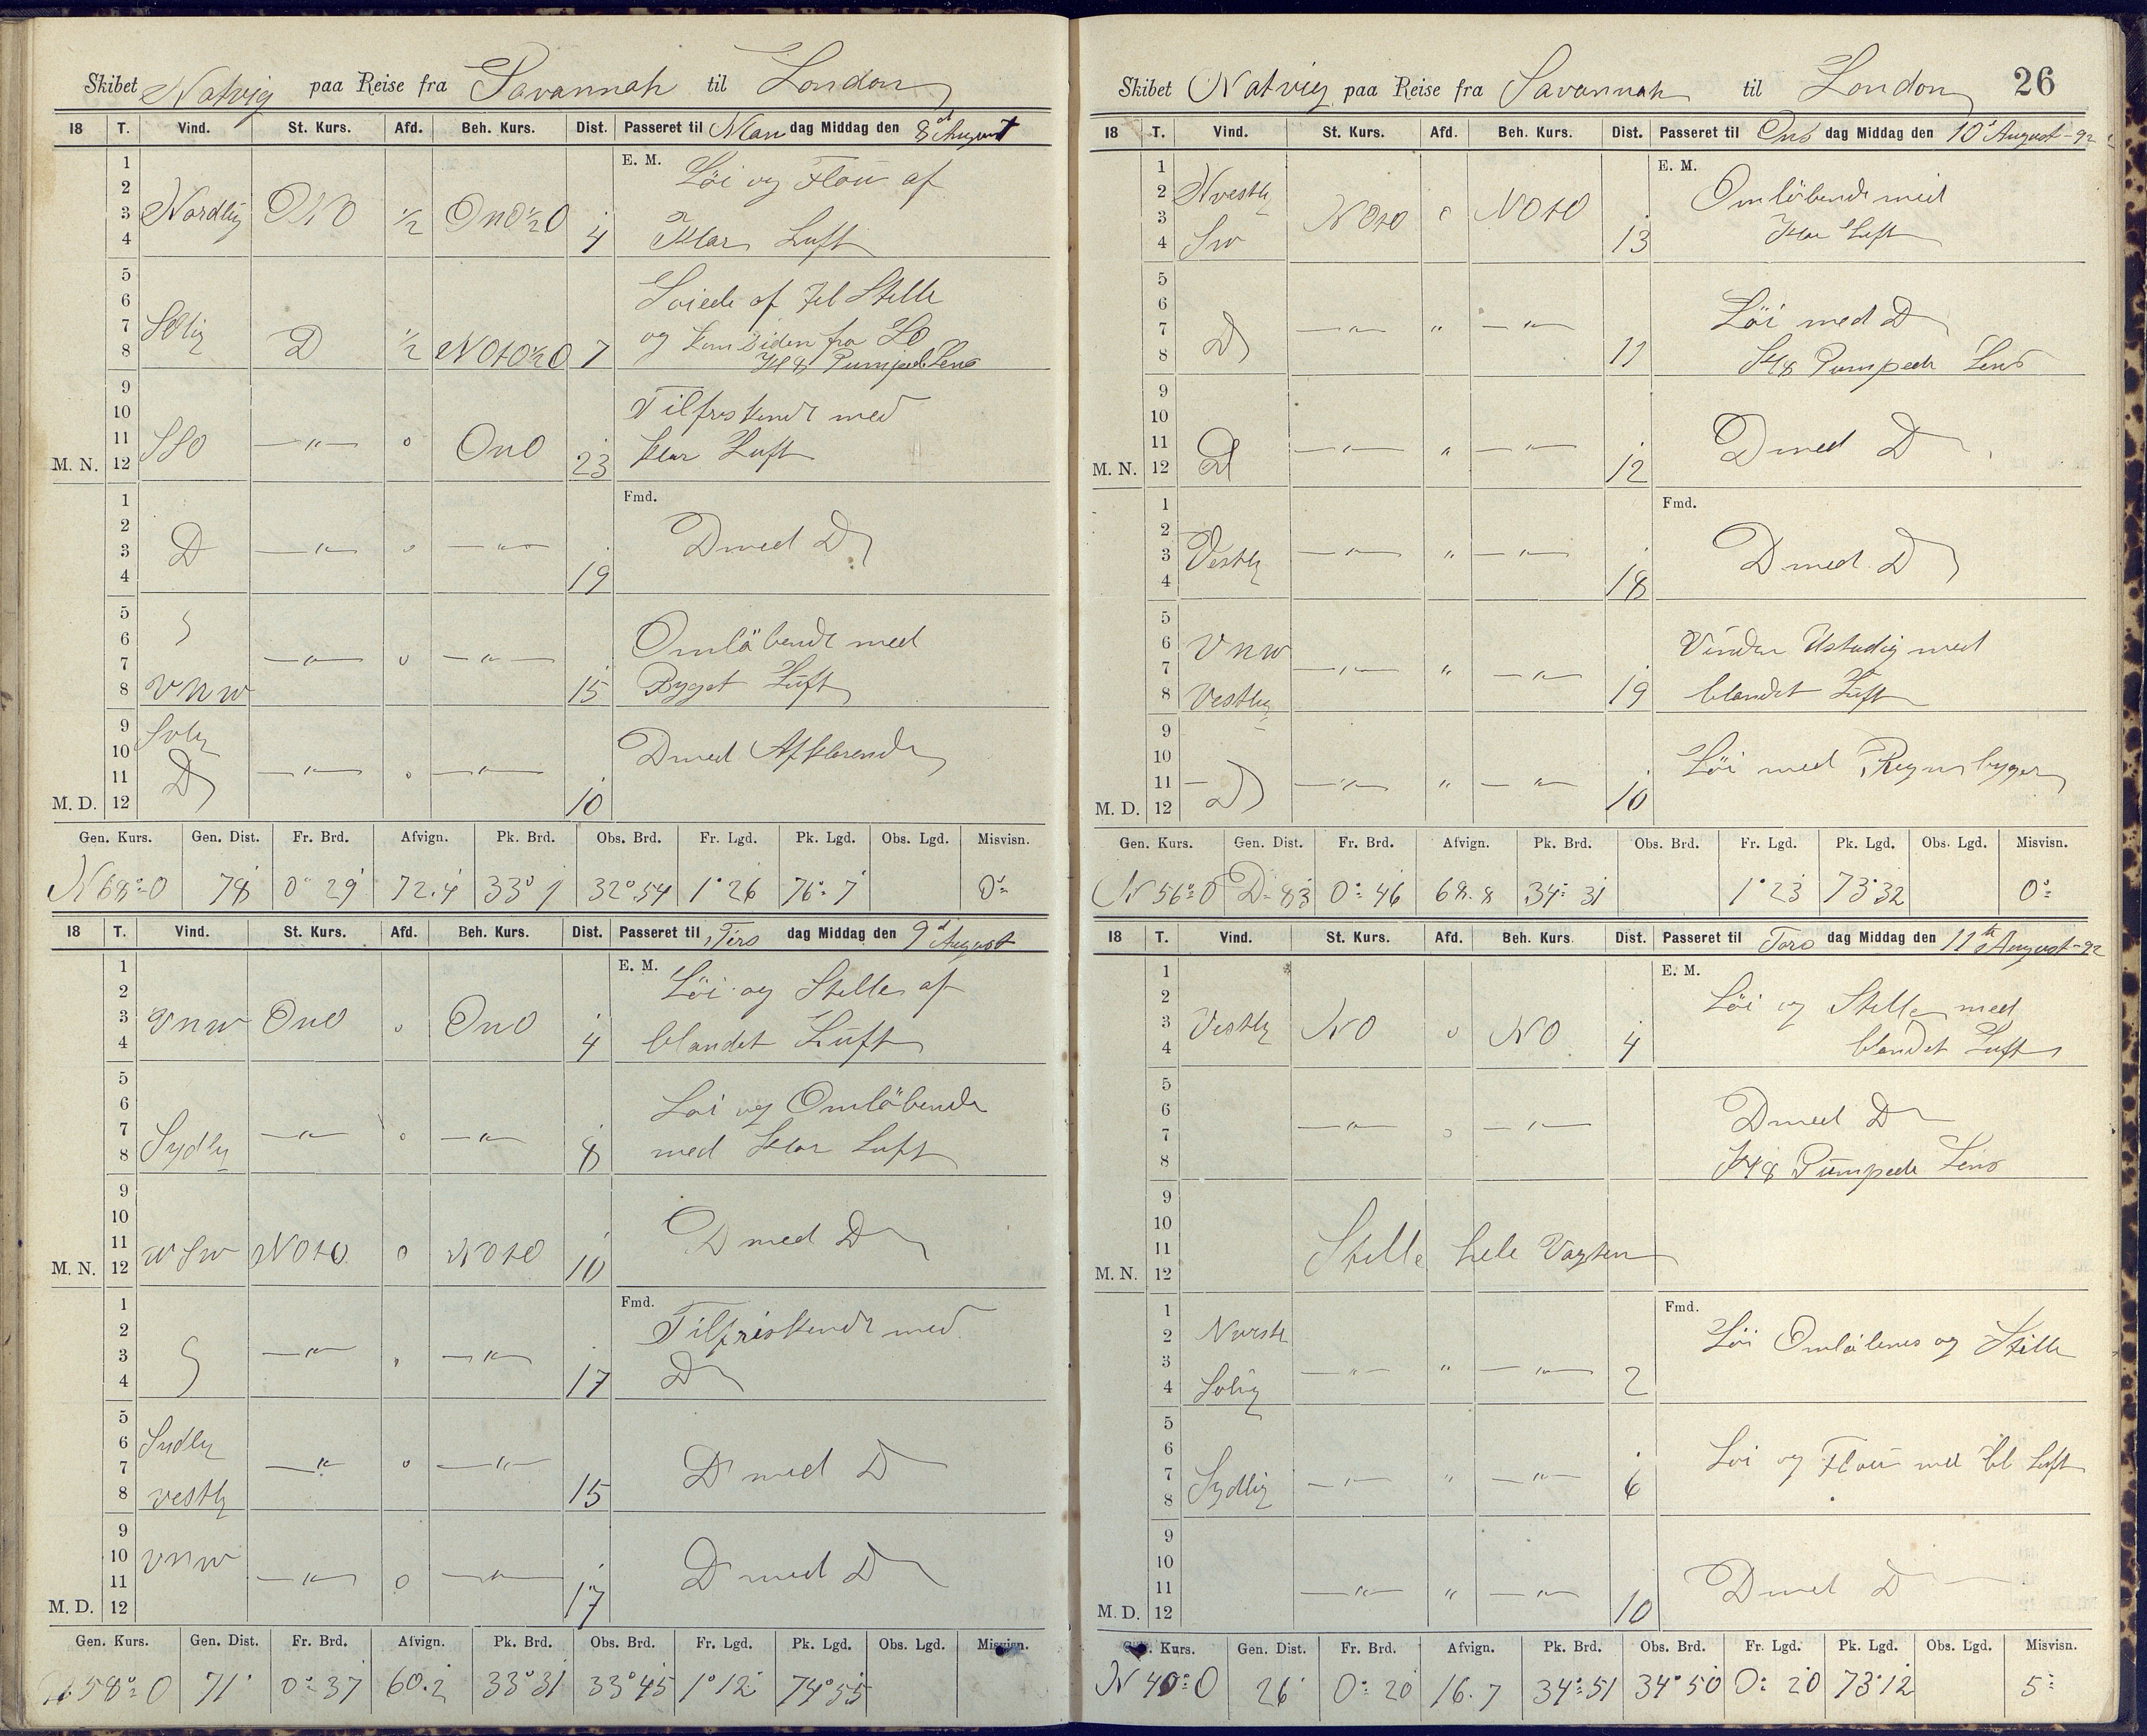 Skibet Natvig paa Reise fra Savannah til London
18 T. Vind. St. Kurs. Afd. Beh. Kurs. Dist. Passeret til Man dag Middag den 8d August
1 E. M. Löi og Flau af
2
3 Nordlig ONO 1/2 ONO1/2O 4
4 Klar Luft
5
6 af til Stille
7 SOlig D 1/2 NOtO1/2O 7 og kom Siden fra SO
8 Kl 8 Pumpede Lens
9
10 Tilfriskende med
11 SSO — " — o OnO 23 klar Luft
M. N. 12
1 Fmd.
2
3 D — " — o — " — 19 D med D
4
5 S
6 Omlöbende med
7 — " — o — " — 15 Byget Luft
8 VNW
9 Solig
10 D med Afklarende
11 D — " — o — " — 10
M. D. 12
Gen. Kurs. Gen. Dist. Fr. Brd. Afvign. Pk. Brd. Obs. Brd. Fr. Lgd. Pk. Lgd. Obs. Lgd. Misvisn.
N 68° O 78 0° 29 72.4 33° 1 32° 54 1° 26 76° 7 0°
18 T. Vind. St. Kurs. Afd. Beh. Kurs. Dist. Passeret til Tirs dag Middag den 9d August
1 E. M. Löi og Stille af
2
3 VNW OnO o OnO 4 blandet Luft
4
5
6 Löi og Omlöbende
7 Sydlig — " — o — " — 8 med klar Luft
8
9
10
11 WSW NOtO o NOtO 10 D med D
M. N. 12
1 Fmd. Tilfriskende med
2
3 S — " — " — " — 17 D
4
5
6 Sydlig
7 — " — o — " — 15 D med D
8 vestlig
9
10 VNW
11 — " — o — " — 17 D med D
M. D. 12
Gen. Kurs. Gen. Dist. Fr. Brd. Afvign. Pk. Brd. Obs. Brd. Fr. Lgd. Pk. Lgd. Obs. Lgd. Misvisn.
N 58° O 71 0° 37 60.2 33° 31 33° 45 1° 12 74° 55
Skibet Natvig paa Reise fra Savannah til London 26
18 T. Vind. St. Kurs. Afd. Beh. Kurs. Dist. Passeret til Ons dag Middag den 10d August - 92
1 E. M.
2 Nvestlig Omlöbende med
3 NOtO o NOtO 13 klar Luft
4 SW
5
6
7 D — " — " — " — 11 Löi med D
8 Kl 8 Pumpede Lens
9
10
11 D — " — " — " — 12 D med D
M. N. 12
1 Fmd.
2
3 Vestlig — " — " — " — 18 D med D
4
5
6 VNW Vinden Ustadig med
7 — " — " — " — 19
8 Vestlig blandet Luft
9
10 Löi med Regnbyger
11 D — " — " — " — 10
M. D. 12
Gen. Kurs. Gen. Dist. Fr. Brd. Afvign. Pk. Brd. Obs. Brd. Fr. Lgd. Pk. Lgd. Obs. Lgd. Misvisn.
N 56° O D- 83 0° 46 68.8 34° 31 1° 23 73° 32 0°
18 T. Vind. St. Kurs. Afd. Beh. Kurs. Dist. Passeret til Tors dag Middag den 11th August - 92
1 E. M.
2 Löi og Stille med
3 Vestlig NO o NO 4 blandet Luft
4
5
6 D med D
7 — " — o — " —
8 Kl 8 Pumpede Lens
9
10
11 Stille hele Vagten
M. N. 12
1 Fmd.
2 Nvestl Löi Omlöbende og Stille
3 — " — " — " — 2
4 Solig
5
6
7 Sydlig — " — " — " — 6 Löi og Flau med bl Luft
8
9
10
11 — " — " — " — 10 D med D
M. D. 12
Gen. Kurs. Gen. Dist. Fr. Brd. Afvign. Pk. Brd. Obs. Brd. Fr. Lgd. Pk. Lgd. Obs. Lgd. Misvisn.
N 40° O 26 0° 20 16.7 34° 51 34° 50 0° 20 73° 12 5°